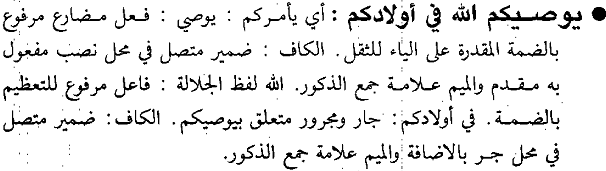 ● يوصيكم الله في أولادكم : أي يأمركم : يوصي : فعل مضارع مرفوع
بالضمة المقدرة على الياء للثقل. الكاف : ضمير متصل في محل نصب مفعول
به مقدم والميم علامة جمع الذكور. الله لفظ الجلالة : فاعل مرفوع للتعظيم
بالضمة. في أولادكم : جار ومجرور متعلق بيوصيكم. الكاف : ضمير متصل
في محل جر بالاضافة والميم علامة جمع الذكور.